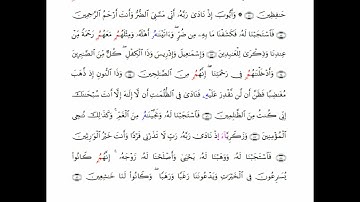 حَـٰفِظِينَ ۞ وَأَيُّوبَ إِذْ نَادَىٰ رَبَّهُۥٓ أَنِّى مَسَّنِىَ ٱلضُّرُّ وَأَنتَ أَرْحَمُ ٱلرَّٰحِمِينَ
فَٱسْتَجَبْنَا لَهُۥ فَكَشَفْنَا مَا بِهِۦ مِن ضُرٍّ وَءَاتَيْنَـٰهُ أَهْلَهُۥ وَمِثْلَهُمُ مَعَهُمُ رَحْمَةً مِّنْ
عِندِنَا وَذِكْرَىٰ لِلْعَـٰبِدِينَ وَإِسْمَـٰعِيلَ وَإِدْرِيسَ وَذَا ٱلْكِفْلِ كُلٌّ مِّنَ ٱلصَّـٰبِرِينَ
وَأَدْخَلْنَـٰهُمُ فِى رَحْمَتِنَا إِنَّهُمُ مِنَ ٱلصَّـٰلِحِينَ وَذَا ٱلنُّونِ إِذ ذَّهَبَ
مُغَـٰضِبًا فَظَنَّ أَن لَّن نَّقْدِرَ عَلَيْهِ فَنَادَىٰ فِى ٱلظُّلُمَـٰتِ أَن لَّآ إِلَـٰهَ إِلَّآ أَنتَ سُبْحَـٰنَكَ
إِنِّى كُنتُ مِنَ ٱلظَّـٰلِمِينَ فَٱسْتَجَبْنَا لَهُۥ وَنَجَّيْنَـٰهُ مِنَ ٱلْغَمِّ وَكَذَٰلِكَ نُـۨجِى
ٱلْمُؤْمِنِينَ وَزَكَرِيَّآءَ إِذْ نَادَىٰ رَبَّهُۥ رَبِّ لَا تَذَرْنِى فَرْدًا وَأَنتَ خَيْرُ ٱلْوَٰرِثِينَ
فَٱسْتَجَبْنَا لَهُۥ وَوَهَبْنَا لَهُۥ يَحْيَىٰ وَأَصْلَحْنَا لَهُۥ زَوْجَهُۥٓ إِنَّهُمُ كَانُوا۟
يُسَـٰرِعُونَ فِى ٱلْخَيْرَٰتِ وَيَدْعُونَنَا رَغَبًا وَرَهَبًا وَكَانُوا۟ لَنَا خَـٰشِعِينَ